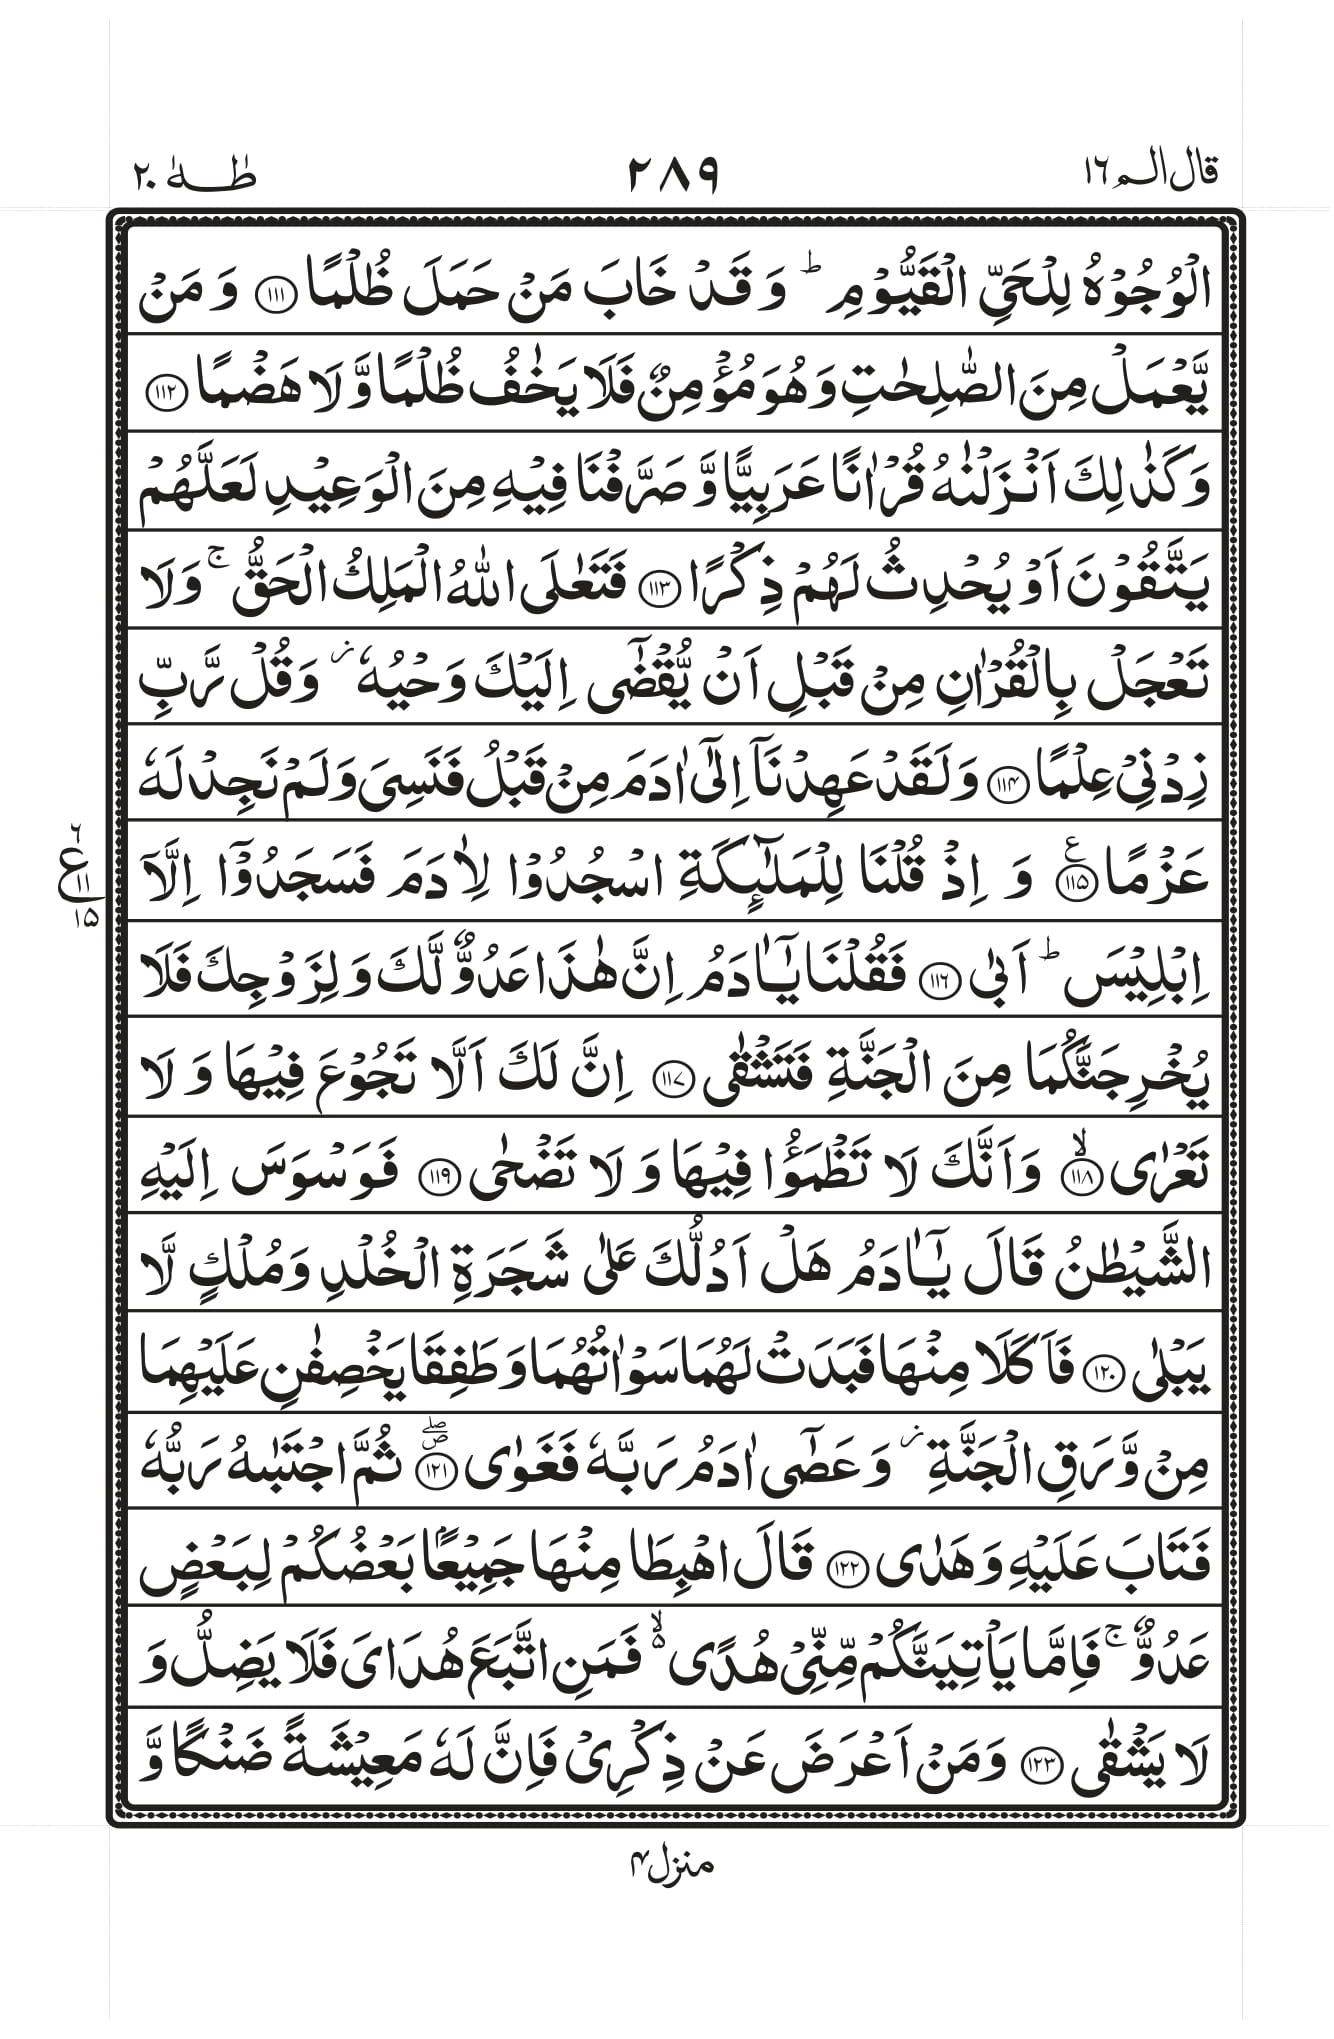 قال الم ١٦
٢٨٩
طٰهٰ ٢٠
الْوُجُوْهُ لِلْحَيِّ الْقَيُّوْمِ ؕ وَ قَدْ خَابَ مَنْ حَمَلَ ظُلْمًا ﴿۱۱۱﴾ وَ مَنْ
يَّعْمَلْ مِنَ الصّٰلِحٰتِ وَ هُوَ مُؤْمِنٌ فَلَا يَخٰفُ ظُلْمًا وَّ لَا هَضْمًا ﴿۱۱۲﴾
وَ كَذٰلِكَ اَنْزَلْنٰهُ قُرْاٰنًا عَرَبِيًّا وَّ صَرَّفْنَا فِيْهِ مِنَ الْوَعِيْدِ لَعَلَّهُمْ
يَتَّقُوْنَ اَوْ يُحْدِثُ لَهُمْ ذِكْرًا ﴿۱۱۳﴾ فَتَعٰلَى اللّٰهُ الْمَلِكُ الْحَقُّ ۚ وَ لَا
تَعْجَلْ بِالْقُرْاٰنِ مِنْ قَبْلِ اَنْ يُّقْضٰۤى اِلَيْكَ وَحْيُهٗ ؗ وَ قُلْ رَّبِّ
زِدْنِيْ عِلْمًا ﴿۱۱۴﴾ وَ لَقَدْ عَهِدْنَاۤ اِلٰۤى اٰدَمَ مِنْ قَبْلُ فَنَسِيَ وَ لَمْ نَجِدْ لَهٗ
عَزْمًا ﴿۱۱۵﴾ ع وَ اِذْ قُلْنَا لِلْمَلٰٓئِكَةِ اسْجُدُوْا لِاٰدَمَ فَسَجَدُوْۤا اِلَّاۤ
٦
ع ١١
١٥
اِبْلِيْسَ ؕ اَبٰى ﴿۱۱۶﴾ فَقُلْنَا يٰۤاٰدَمُ اِنَّ هٰذَا عَدُوٌّ لَّكَ وَ لِزَوْجِكَ فَلَا
يُخْرِجَنَّكُمَا مِنَ الْجَنَّةِ فَتَشْقٰى ﴿۱۱۷﴾ اِنَّ لَكَ اَلَّا تَجُوْعَ فِيْهَا وَ لَا
تَعْرٰى ﴿۱۱۸﴾ۙ وَ اَنَّكَ لَا تَظْمَؤُا فِيْهَا وَ لَا تَضْحٰى ﴿۱۱۹﴾ فَوَسْوَسَ اِلَيْهِ
الشَّيْطٰنُ قَالَ يٰۤاٰدَمُ هَلْ اَدُلُّكَ عَلٰى شَجَرَةِ الْخُلْدِ وَ مُلْكٍ لَّا
يَبْلٰى ﴿۱۲۰﴾ فَاَكَلَا مِنْهَا فَبَدَتْ لَهُمَا سَوْاٰتُهُمَا وَ طَفِقَا يَخْصِفٰنِ عَلَيْهِمَا
مِنْ وَّرَقِ الْجَنَّةِ ؗ وَ عَصٰۤى اٰدَمُ رَبَّهٗ فَغَوٰى ﴿۱۲۱﴾ ۪ۖ ثُمَّ اجْتَبٰىهُ رَبُّهٗ
فَتَابَ عَلَيْهِ وَ هَدٰى ﴿۱۲۲﴾ قَالَ اهْبِطَا مِنْهَا جَمِيْعًۢا بَعْضُكُمْ لِبَعْضٍ
عَدُوٌّ ۚ فَاِمَّا يَاْتِيَنَّكُمْ مِّنِّيْ هُدًى ۙ۬ فَمَنِ اتَّبَعَ هُدَايَ فَلَا يَضِلُّ وَ
لَا يَشْقٰى ﴿۱۲۳﴾ وَ مَنْ اَعْرَضَ عَنْ ذِكْرِيْ فَاِنَّ لَهٗ مَعِيْشَةً ضَنْكًا وَّ
منزل ۴